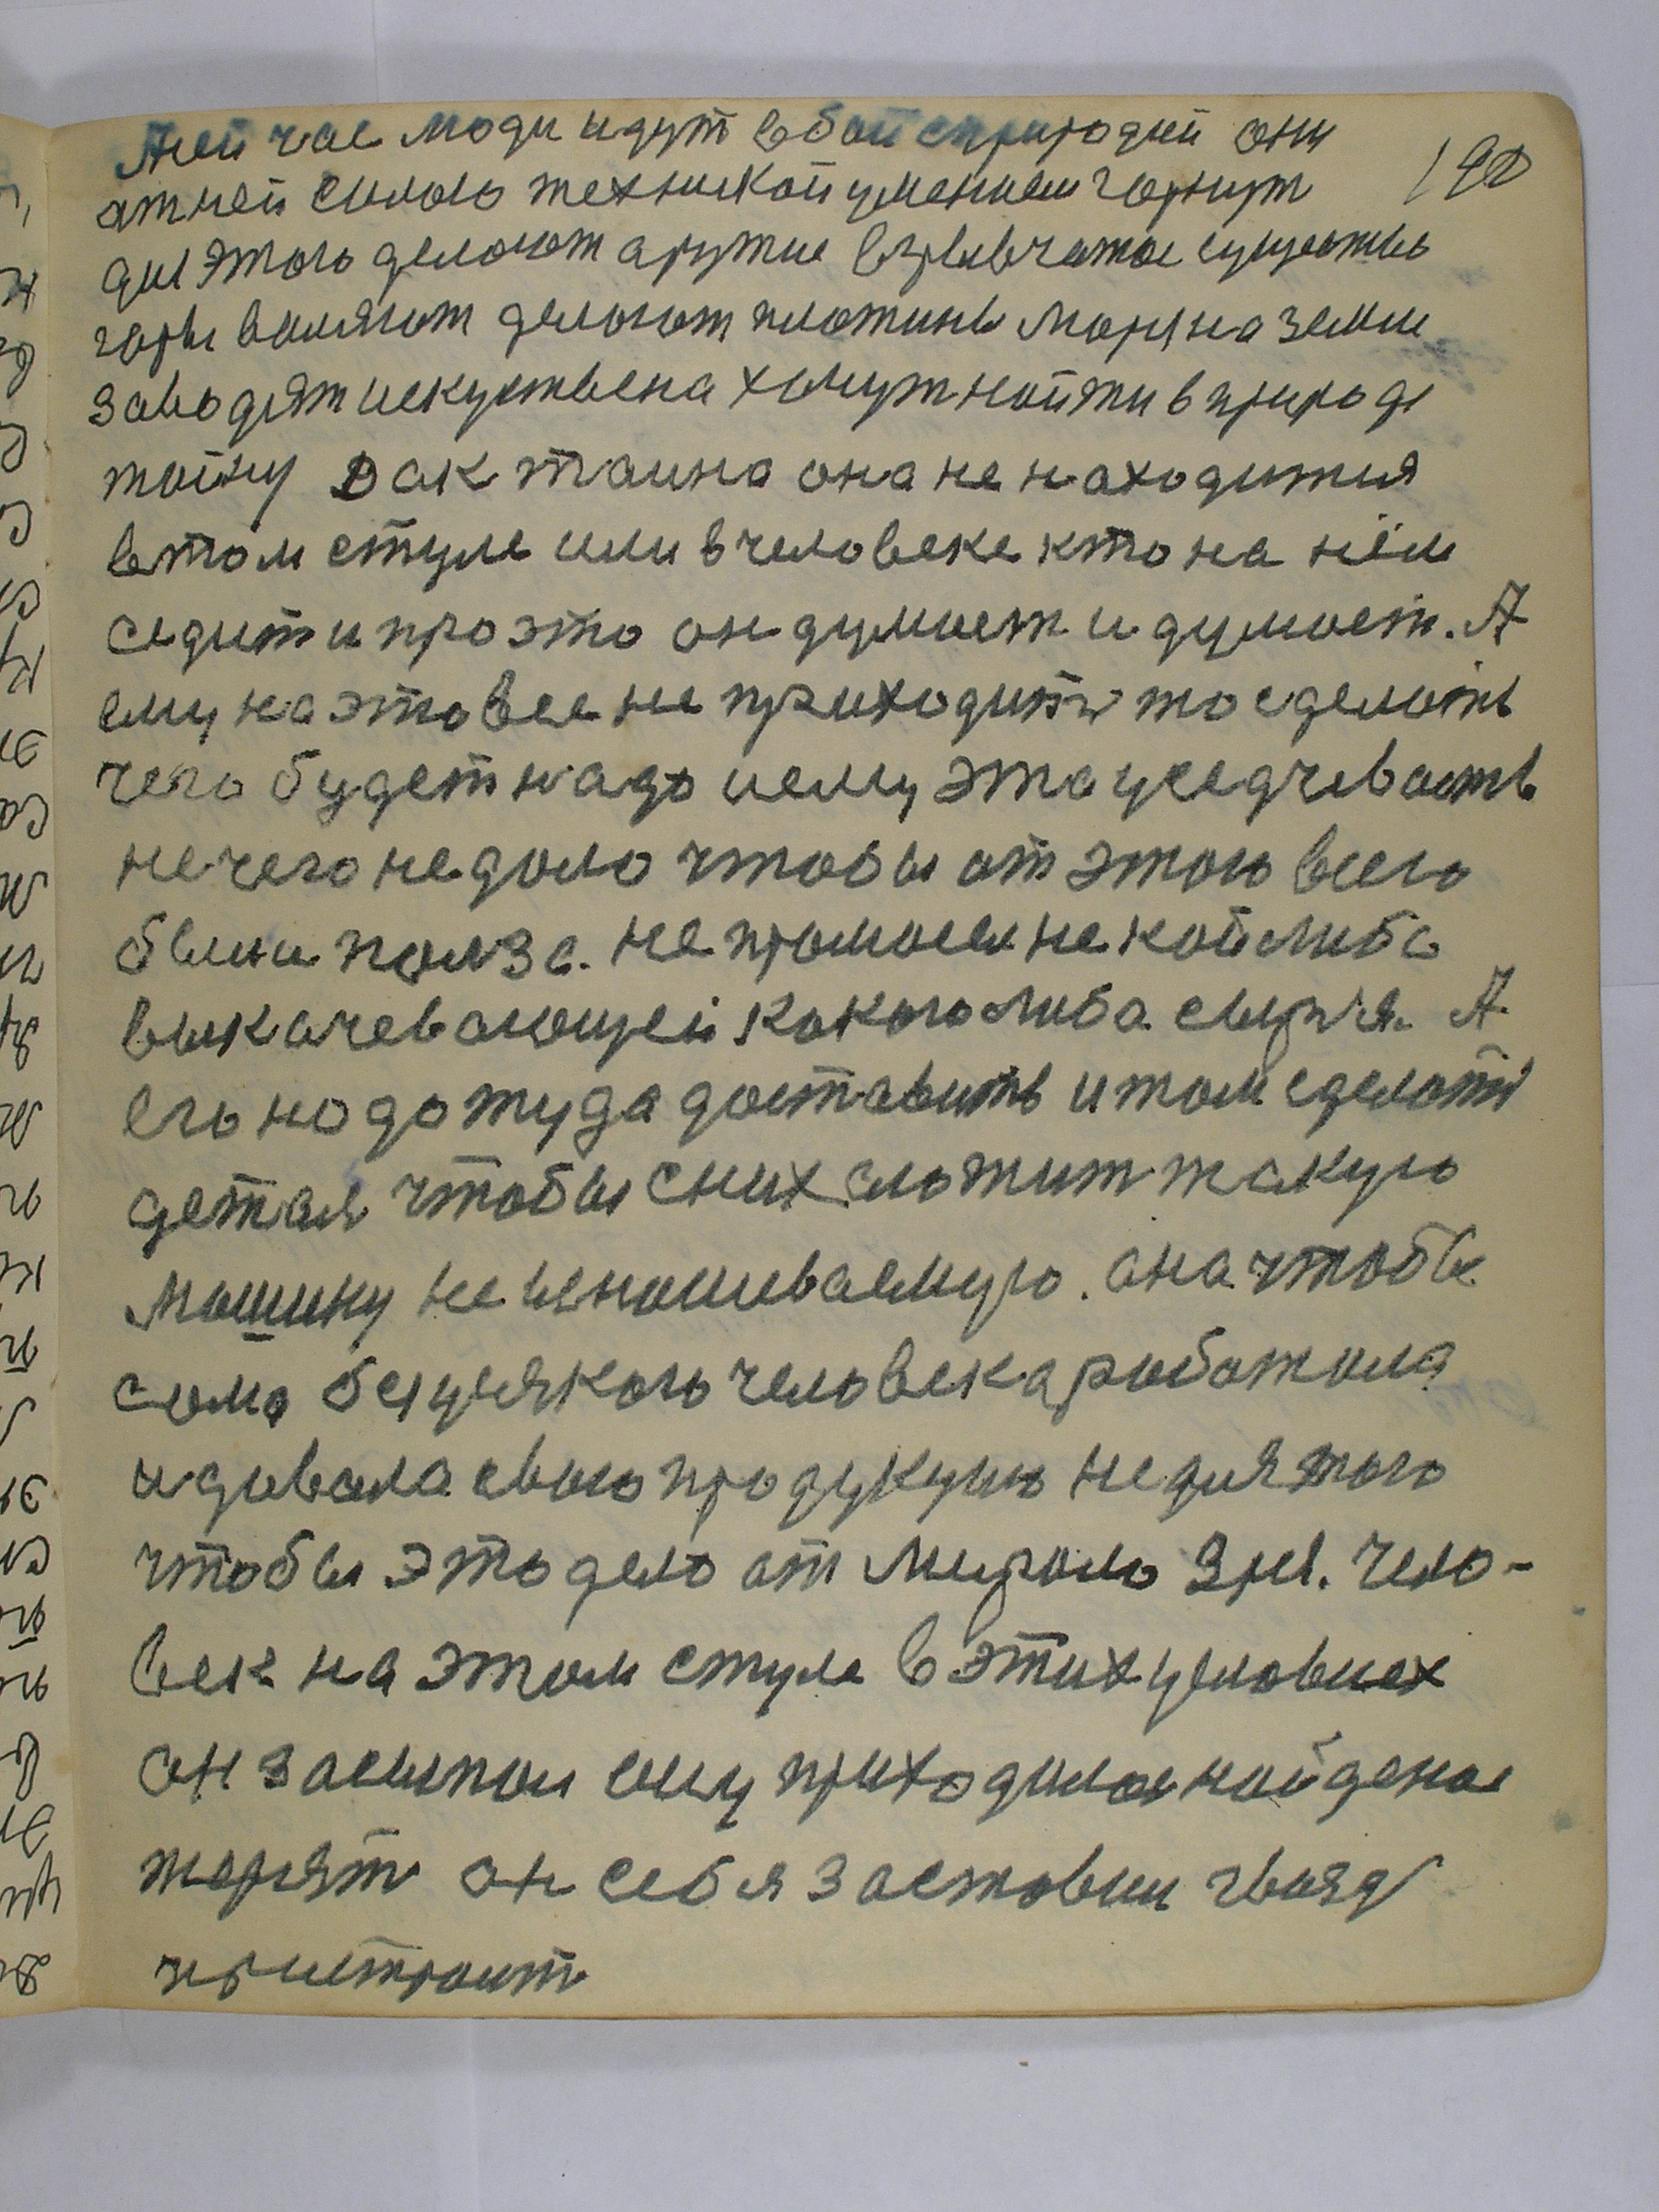 Асей час люди идут вбой сприродай они
190
атней силою техникай умением чорнут
для этого делоют аружие взрывчатое существо
горы валяют делоют плотины моря на земли
заводят искуствена хочут найти в природе
тайну Дак таина она не находится
втом стуле или в человеке кто на нём
седит и про это он думоет и думоет. А
ему на это все не приходить то сделоть
чего будет надо иему это усе
нечего недало чтобы от этого всего
была полза. не прамоей не койлиба
выкачевоющей какоголиба сырья. А
его надо туда доставить и там сделоть
детал чтобы сних сложит такую
машину не изношиваемую. она чтобы
сама безуяякого человека работола
идовала свою продукцию не для того
чтобы это дело от мерало зря. Чело-
век на этом стуле в этих условиех
он засыпал ему приходилос найденое
терят он себя заставил гвоздь